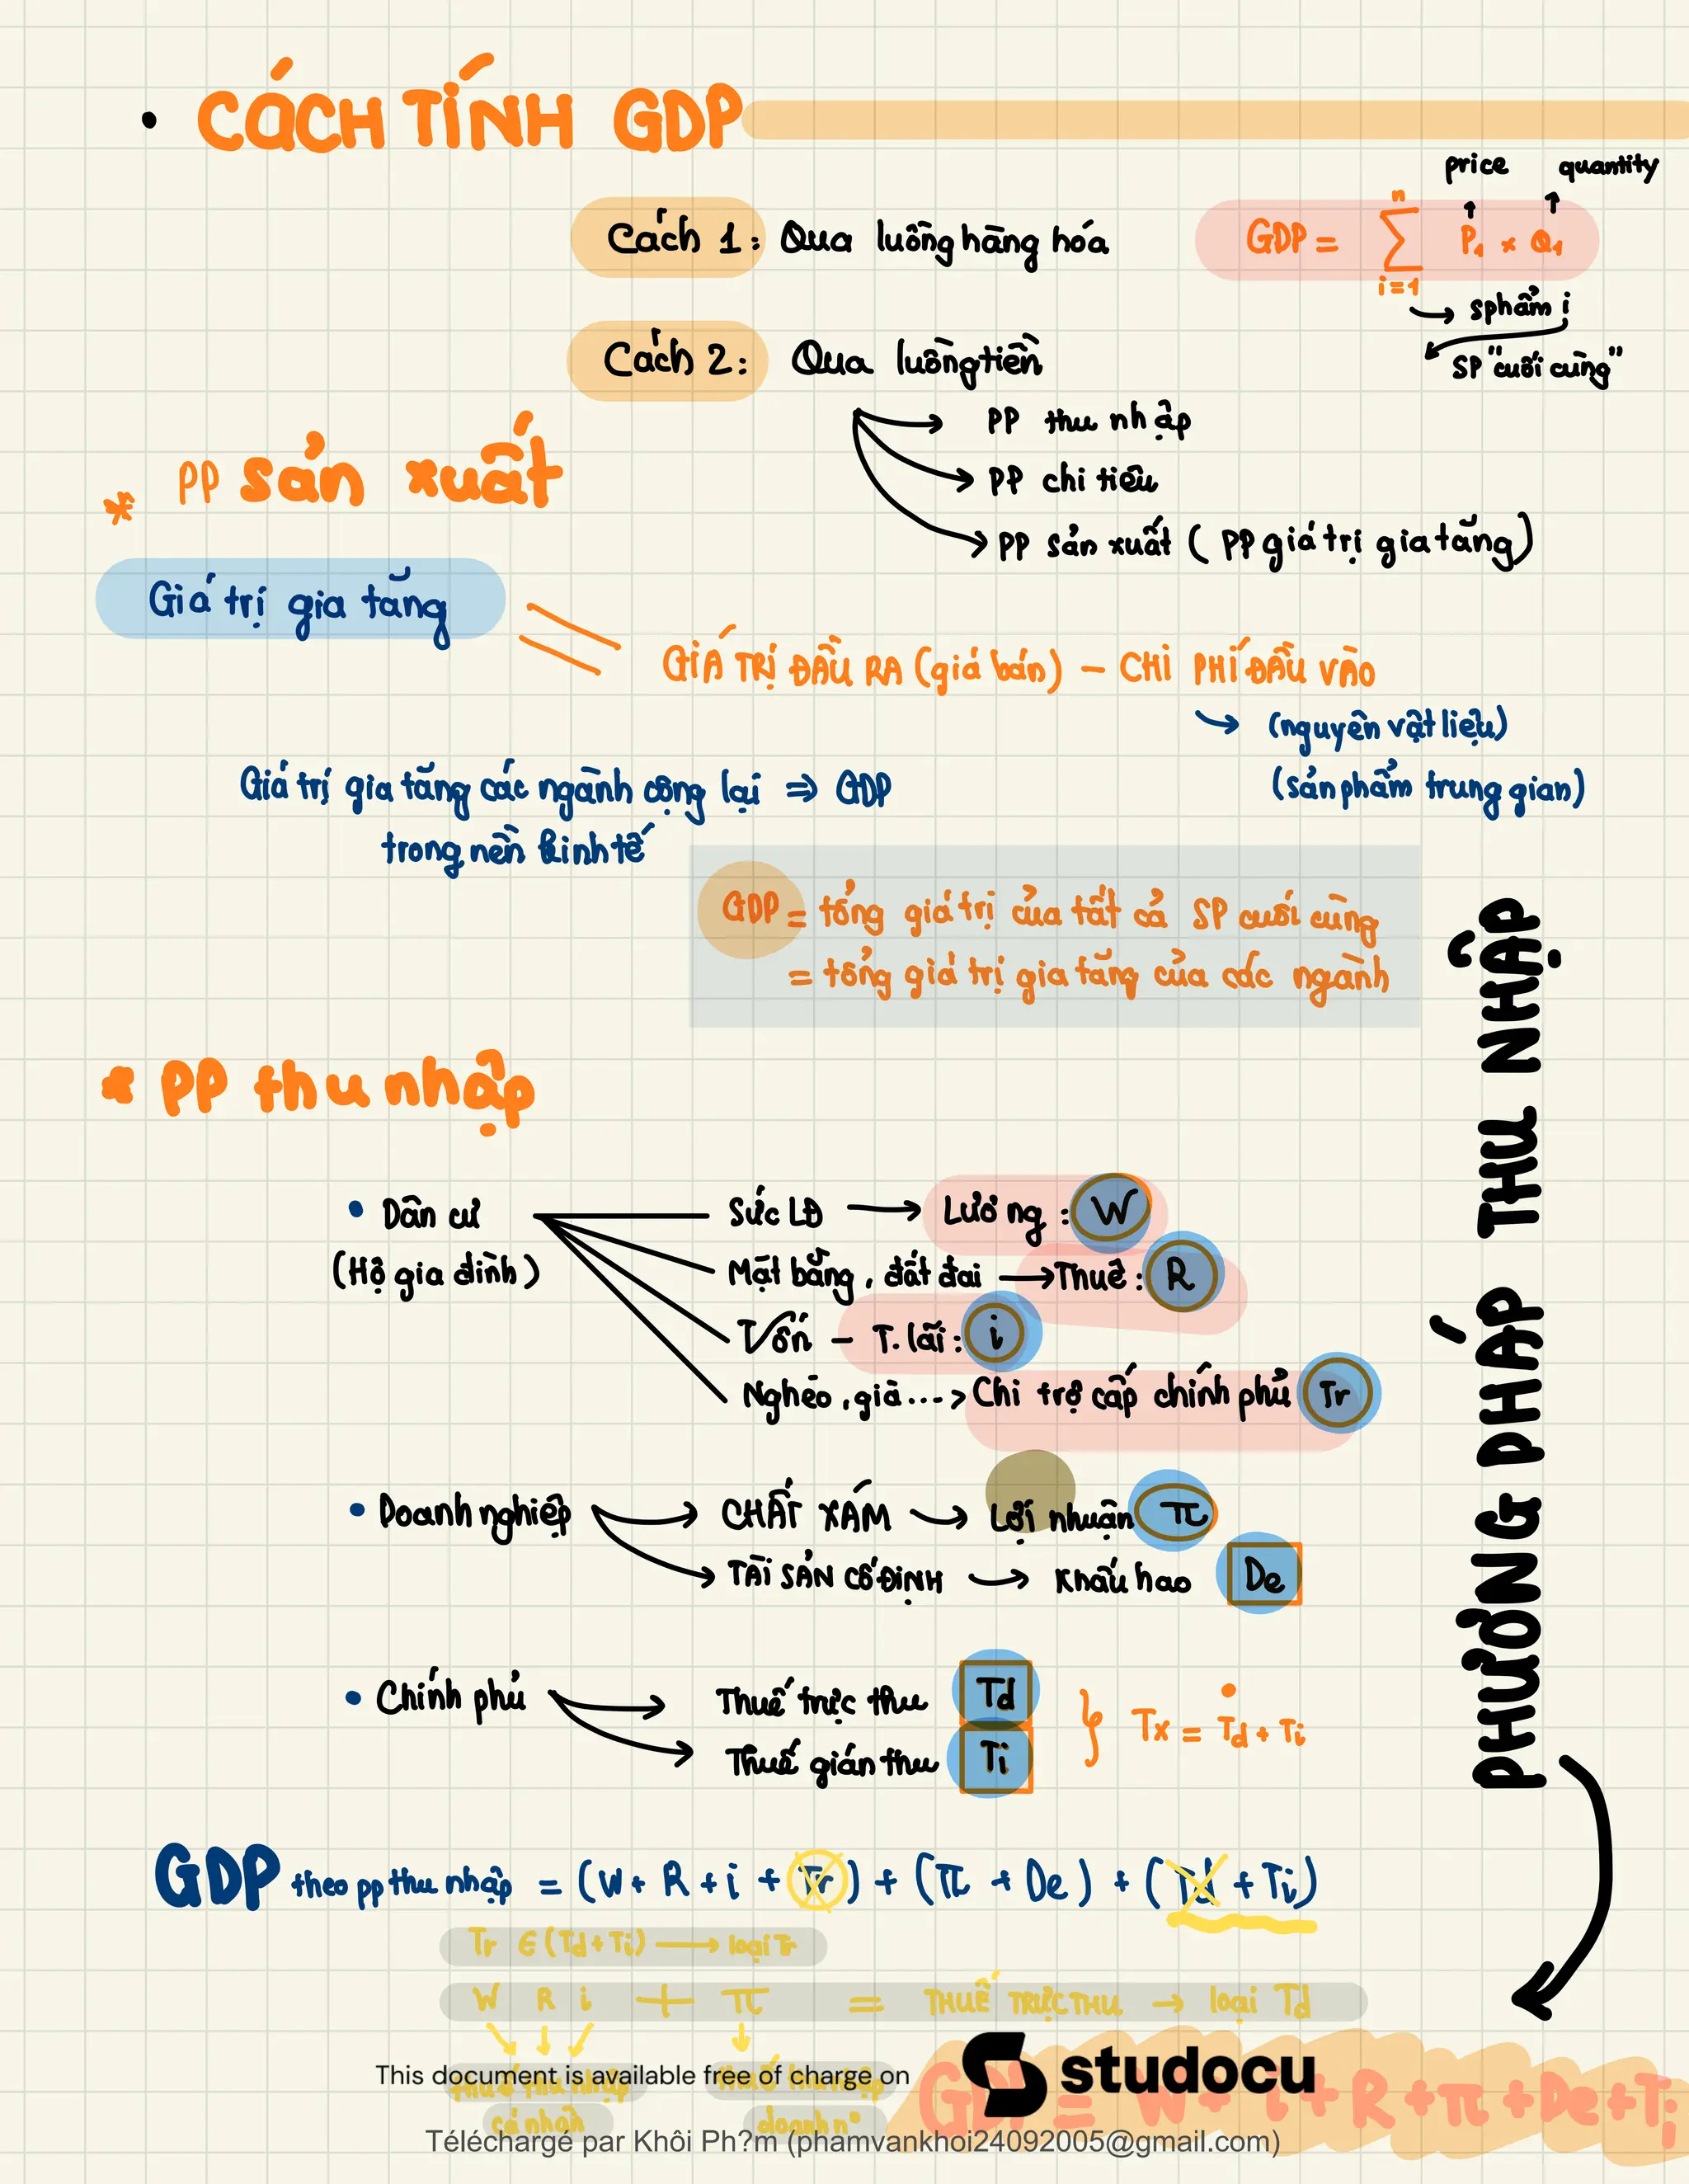 • CÁCH TÍNH GDP
price quantity
Cách 1: Qua luồng hàng hóa
GDP = n ∑ i=1 P₁ × Q₁
→ sphẩm i
SP "cuối cùng"
Cách 2: Qua luồng tiền
→ PP thu nhập
→ PP chi tiêu
→ PP sản xuất ( PP giá trị gia tăng)
* PP sản xuất
Giá trị gia tăng
= GIÁ TRỊ ĐẦU RA (giá bán) – CHI PHÍ ĐẦU VÀO
→ (nguyên vật liệu)
(sản phẩm trung gian)
Giá trị gia tăng các ngành cộng lại ⇒ GDP
trong nền kinh tế
GDP = tổng giá trị của tất cả SP cuối cùng
= tổng giá trị gia tăng của các ngành
* PP thu nhập
• Dân cư
(Hộ gia đình)
Sức LĐ → Lương : W
Mặt bằng, đất đai → Thuê : R
Vốn – T. lãi : i
Nghèo, già ... > Chi trợ cấp chính phủ Tr
• Doanh nghiệp → CHẤT XÁM → Lợi nhuận π
→ TÀI SẢN CỐ ĐỊNH → Khấu hao De
• Chính phủ → Thuế trực thu Td
→ Thuế gián thu Ti
} Tx = Td + Ti
PHƯƠNG PHÁP THU NHẬP
GDP theo pp thu nhập = (W + R + i + Tr) + (π + De) + (Td + Ti)
Tr ∈ (Td + Ti) → loại Tr
W R i + π = THUẾ TRỰC THU → loại Td
thuế thu nhập
cá nhân
thuế thu nhập
doanh n°
GDP = W + i + R + π + De + Ti
This document is available free of charge on studocu
Téléchargé par Khôi Ph?m (phamvankhoi24092005@gmail.com)